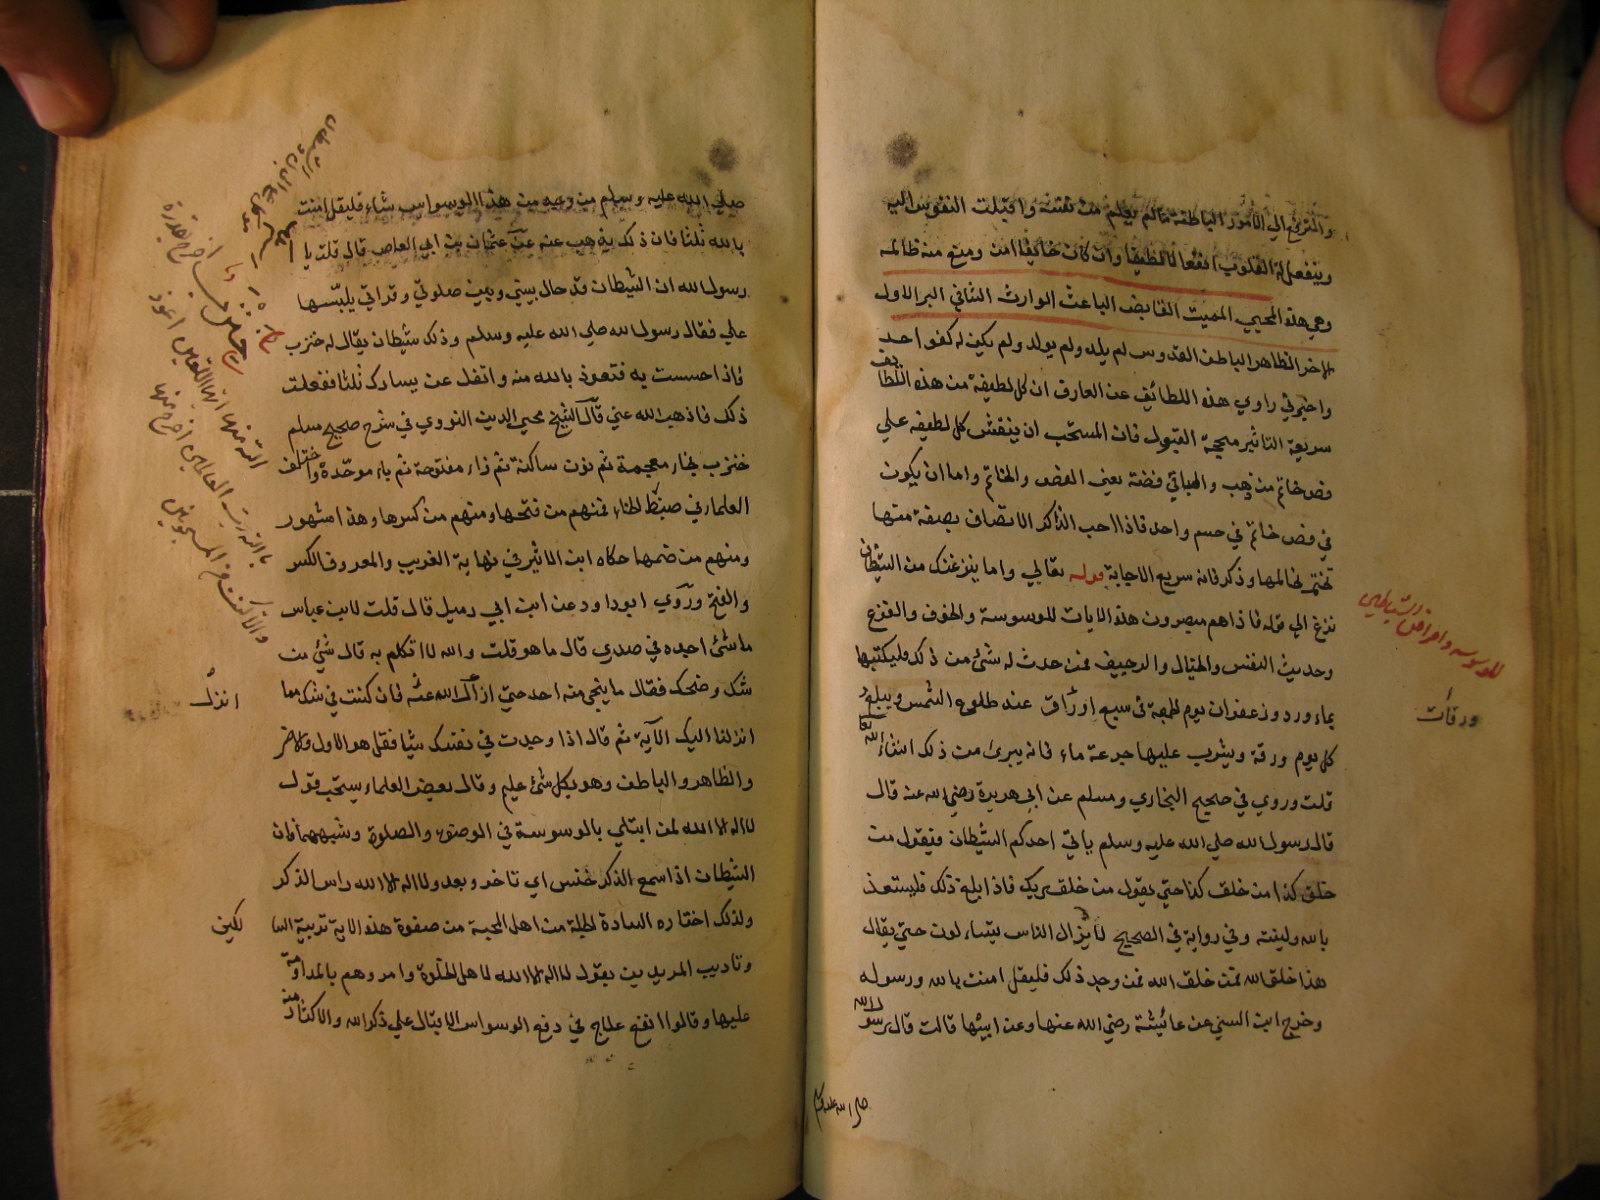 والترقي الي الامور الباطنة مالم يعلم من نفسه واقبلت النفوس اليه
وينفعل له القلوب انفعالا لطيفا وان كان خائفا امن ومنع منه ظالمه
وهي هذه المحيي المميت القابض الباعث الوارث الثاني البر الاول
الاخر الظاهر الباطن القدوس لم يلد ولم يولد ولم يكن له كفوا احد
واخبرني راوي هذه اللطائف عن العارف ان كل لطيفة من هذه اللطايف
سريعة التاثير القبول فان المستحب ان ينقش كل لطيفه علي
فص خاتم من ذهب والباقي فضة يعني الفص والخاتم واما ان يكون
في فص خاتم في جسم واحد فاذا احب الذاكر الاتصاف بصفة منها
تختم بخاتمها وذكر فانه سريع الاجابة قوله تعالي واما ينزغنك من الشيطان
نزغ الي قوله فاذا هم مبصرون هذه الايات للوسوسة والخوف والفزع
وحديث النفس والخيال والرجيف فمن حدث له شئ من ذلك فليكتبها
بماء ورد وزعفران يوم الجمعة في سبع اوراق عند طلوع الشمس ويبلع
كل يوم ورقة ويشرب عليها جرعة ماء فانه يبرئ من ذلك انشاء الله تعا
قلت وروي في صحيح البخاري ومسلم عن ابي هريرة رضي الله عنه قال
قال رسول الله صلي الله عليه وسلم ياتي احدكم الشيطان فيقول من
خلق كذا من خلق كذا حتي يقول من خلق ربك فاذا بلغ ذلك فليستعذ
بالله ولينته وفي رواية في الصحيح لا يزال الناس يتساءلون حتي يقال
هذا خلق الله فمن خلق الله فمن وجد ذلك فليقل امنت بالله ورسوله
وخرج ابن السني عن عائيشة رضي الله عنها وعن ابيها قالت قال رسول الله
صلي الله عليه وسلم
للوسوسه وامراض الشياطين
ورقات
صلي الله عليه وسلم من وجد من هذا الوسواس شاء فليقل امنت
بالله ثلثا فان ذلك يذهب عنه عن عثمان بن ابي العاص قال قلت يا
رسول الله ان الشيطان قد حال بيني وبين صلوتي وقراتي يلبسها
علي فقال رسول الله صلي الله عليه وسلم وذلك شيطان يقال له خنزب
فاذا احسست به فتعوذ بالله منه واتفل عن يسارك ثلثا ففعلت
ذلك فاذهب الله عني قال الشيخ محيي الدين النووي في شرح صحيح مسلم
خنزب بخاء معجمة ثم نون ساكنة ثم زاء مفتوحة ثم باء موحدة واختلف
العلماء في ضبط الخاء فمنهم من فتحها ومنهم من كسرها وهذا مشهور
ومنهم من ضمها حكاه ابن الاثير في نهاية الغريب والمعروف الكسر
والفتح وروي ابو داود عن ابن ابي رميل قال قلت لابن عباس
ما شئ اجده في صدري قال ما هو قلت والله لا اتكلم به قال شئ من
شك وضحك فقال ما ينجي منه احد حتي انزل الله عنه فان كنت في شك مما
انزلنا اليك الآية ثم قال اذا وجدت في نفسك شيا فقل هو الاول والاخر
والظاهر والباطن وهو بكل شئ عليم وقال بعض العلماء يستحب قول
لا اله الا الله لمن ابتلي بالوسوسة في الوضوء والصلوة وشبههما فان
الشيطان اذا سمع الذكر خنس اي تاخر وبعد ولا اله الا الله راس الذكر
ولذلك اختاره السادة الجلة من اهل المحبة من صفوة هذه الاية تربية السا
وتاديب المريدين بقول لا اله الا الله لاهل الخلوة وامروهم بالمداومة
عليها وقالوا انفع علاج في دفع الوسواس الاقبال علي ذكر الله والاكثار منه
انزل
لكين